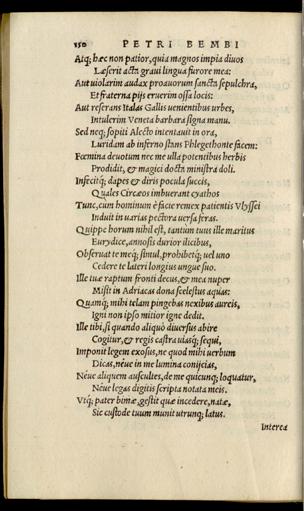 150 PETRI BEMBI
Atq; hæc non patior, quia magnos impia diuos
Læserit acta graui lingua furore mea:
Aut uiolarim audax proauorum sancta sepulchra,
Et fraterna pijs eruerim ossa locis:
Aut reserans Italas Gallis uenientibus urbes,
Intulerim Veneta barbara signa manu.
Sed neq; sopiti Alecto intentauit in ora,
Luridam ab inferno stans Phlegethonte facem:
Fœmina deuotum nec me ulla potentibus herbis
Prodidit, & magici docta ministra doli.
Infecitq; dapes & diris pocula succis,
Quales Circæos imbuerant cyathos
Tunc, cum hominum è facie remex patientis Vlyssei
Induit in uarias pectora uersa feras.
Quippe horum nihil est, tantum tuus ille maritus
Eurydice, annosis durior ilicibus,
Obseruat te meq; simul, prohibetq; uel uno
Cedere te lateri longius ungue suo.
Ille tuæ raptum fronti decus, & mea nuper
Misit in Adriacas dona scelestus aquas:
Quamq; mihi telam pingebas nexibus aureis,
Igni non ipso mitior igne dedit.
Ille tibi, si quando aliquò diuersus abire
Cogitur, & regis castra uiasq; sequi,
Imponit legem exosus, ne quod mihi uerbum
Dicas, néue in me lumina conijcias,
Néue aliquem auscultes, de me quicunq; loquatur,
Néue legas digitis scripta notata meis.
Vtq; pater bimæ, gestit quæ incedere, natæ,
Sic custode tuum munit utrunq; latus.
Interea